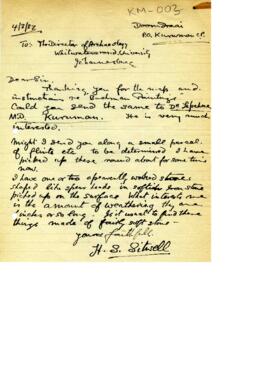 KM-003
4/8/52
P.O. Kuruman C.P.
To The Director of Archaeology
Witwatersrand University
Johannesburg
Dear Sir.
Thanking you for the map and
instructions re Bushman Paintings
Could you send the same to Dr
M.D. Kuruman. He is very much
interested.
Might I send you along a small parcel
of flints etc to be determined I have
picked up these round about for some time
now.
I have one or two apparently worked stones
shaped like spear heads in
picked up on the surface. What interests
me is the amount of weathering they are
inches or so long. Is it usual to find these
things made of fairly soft stone -
yours faithfull.
H. S. Sitwell